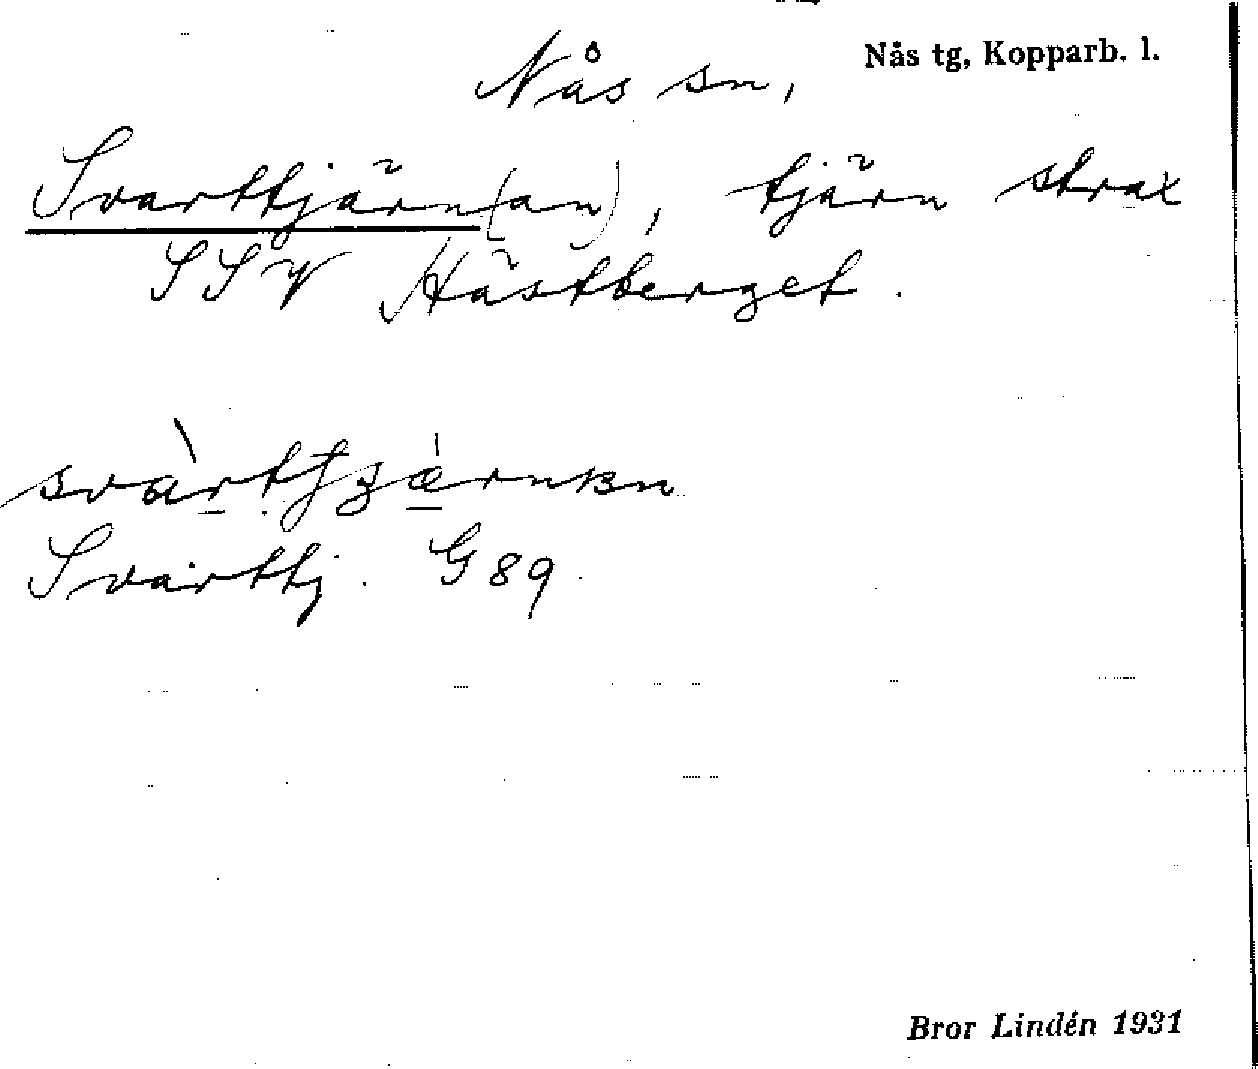 Nås tg, Kopparb. l.
Nås sn,
Svarttjärn(an), tjärn strax
SSV Hästberget.
Svarttj. G 89.
Bror Lindén 1931